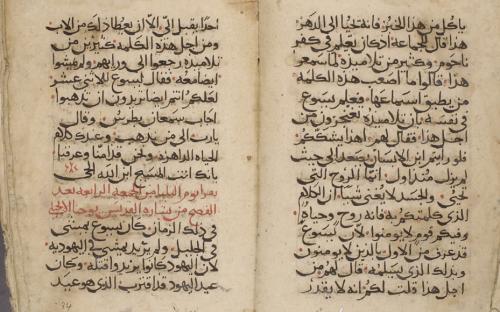 ياكل من هذا الخبز فانه يحيا الى الدهر
هذا قال الجماعة اذ كان يعلم في كفر
ناحوم وكثير من تلاميذه لما سمعوا
هذا قالوا ما اصعب هذه الكلمه
من يطيق استماعها فعلم يسوع
في نفسه بان تلاميذه من
اجل هذا فقال لهم اهذا يشككم
فلو رايتم ابن الانسان يصعد الى حيث
لم يزل انما الروح التي
تحيي والجسد لا يغني شيا ان الكلام
الذي كلمتكم به فانه روح وحياه
وفيكم قوم لا يومنوا لان يسوع
قد عرف من الاول الذين لا يومنون
وبذلك الذي يسلمه قال لهم من
اجل هذا قلت لكم انه لا يقدر
احدا يقبل الي الا ان يعطا ذلك من الاب
ومن اجل هذه الكلمه كثيرين من
تلاميذه رجعوا الى وراهم ولم يمشوا
ايضا معه فقال يسوع للاثني عشر
لعلكم انتم ايضا تريدون ان تذهبوا
اجاب سمعان بطرس وقال
يارب الى من نذهب وعندك كلام
الحياه الداهره ونحن قد امنا وعرفنا
بانك انت المسيح ابن الله الحي
يقرا يوم من الجمعه الرابعه بعد
الفصح من بشاره القديس يوحنا
في ذلك الزمان كان يسوع يمشي
في الجليل ولم يريد يمشي في اليهوديه
لان اليهود كانوا يريدوا قتله وكان
عيد اليهود قد اقترب الذي هو عيد